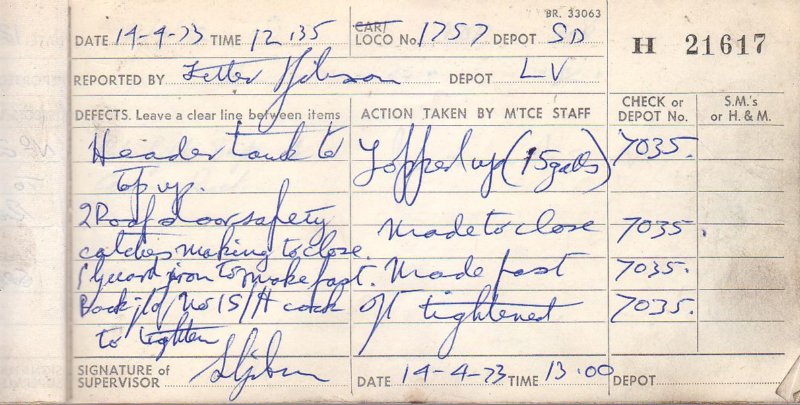 BR. 33063
DATE 14-4-73 TIME 12.35 CART LOCO No. 1757 DEPOT SD
H 21617
REPORTED BY Fitter Gibson DEPOT LV
DEFECTS. Leave a clear line between items ACTION TAKEN BY M'TCE STAFF CHECK or DEPOT No. S.M.'s or H. & M.
Header tank to Topped up (15galls) 7035.
top up.
2 Roof door safety Made to close 7035.
catches making to close.
1 Guard iron to make fast. Made fast 7035.
No 1 S/H cock tightened 7035.
to tighten
SIGNATURE of SUPERVISOR DATE 14-4-73 TIME 13.00 DEPOT